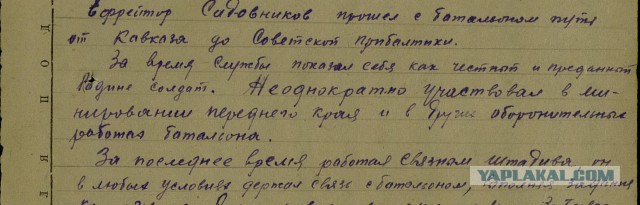 Ефрейтор Садовников прошел с батальоном путь
от Кавказа до Советской прибалтики.
За время службы показал себя как честный и преданный
Родине солдат. Неоднократно участвовал в ми-
нировании переднего края и в других оборонительных
работах баталиона.
За последнее время работая связным штадива он
в любых условиях держал связь с батальоном, выполняя задания
YAPLAKAL.COM